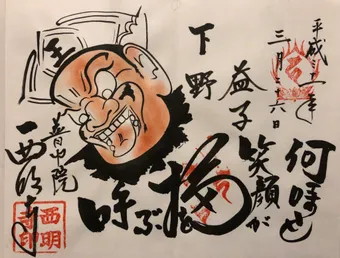 平成三一年
三月二六日
何時も
笑顔が
福を
呼ぶ
下野
益子
王
普門院
西明寺
西明
寺印